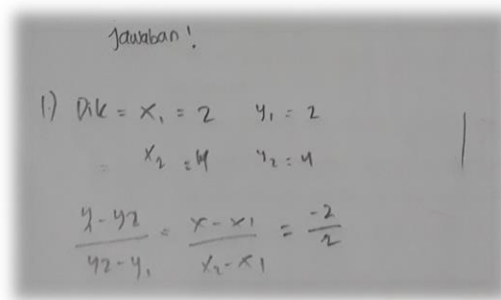 Jawaban!
1.) Dik = x₁ = 2 y₁ = 2
= x₂ = 4 y₂ = 4
y - y₂ / y₂ - y₁ = x - x₁ / x₂ - x₁ = -2 / 2